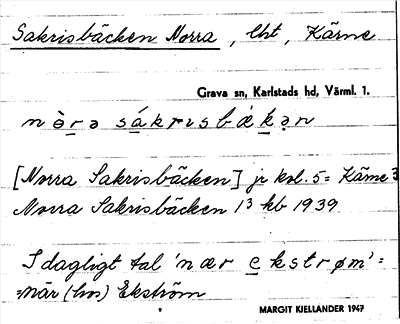 Sakrisbäcken Norra, lht, Kärne
Grava sn, Karlstads hd, Värml. l.
nə̀rə sákrɪsbɛ́kən
[Norra Sakrisbäcken] jr kol. 5 = Kärne 3
Norra Sakrisbäcken 1³ kb 1939
I dagligt tal 'nær ekstrøm' =
=när (hos) Ekström
MARGIT KIELLANDER 1947